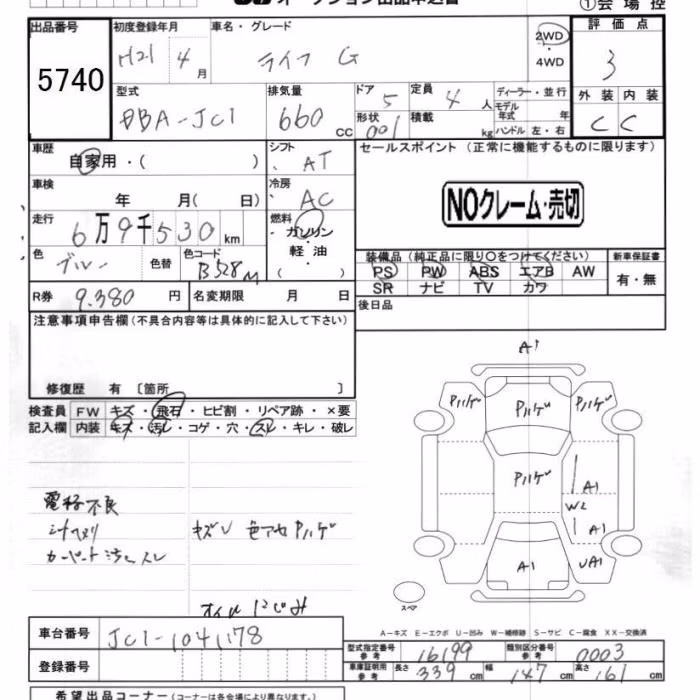 ①会場控
出品番号 初度登録年月 車名・グレード 評価点
5740 H21年 4月 ライフ G 2WD・4WD 3
型式 排気量 ドア 定員 ディーラー・並行 外装 内装
DBA-JC1 660cc 5 4人 モデル年式 年 C C
形状 001 積載 kg ハンドル 左・右
車歴 シフト セールスポイント(正常に機能するものに限ります)
自家用・( ) AT
車検 冷房
年 月( 日) AC NOクレーム・売切
走行 燃料
6万9千530km ガソリン
軽油
( )
色 色替 色コード 装備品(純正品に限り○をつけてください) 新車保証書
ブルー B528M PS PW ABS エアB AW 有・無
SR ナビ TV カワ
R券 9.380円 名変期限 月 日 後日品
注意事項申告欄(不具合内容等は具体的に記入して下さい)
修復歴 有〔箇所 〕
検査員 FW キズ・飛石・ヒビ割・リペア跡・×要
記入欄 内装 キズ・汚レ・コゲ・穴・スレ・キレ・破レ
A1
Pハゲ Pハゲ Pハゲ
Pハゲ
A1
W2
A1
A1 UA1
電格不良
キズU 色アセ Pハゲ
オイルにじみ
スペア
A-キズ E-エクボ U-凹み W-補修跡 S-サビ C-腐食 XX-交換済
車台番号 JC1-1041178
登録番号
型式指定番号参考 16199 類別区分番号参考 0003
車庫証明用参考 長さ 339cm 幅 147cm 高さ 161cm
希望出品コーナー(コーナーは各会場により異なります)